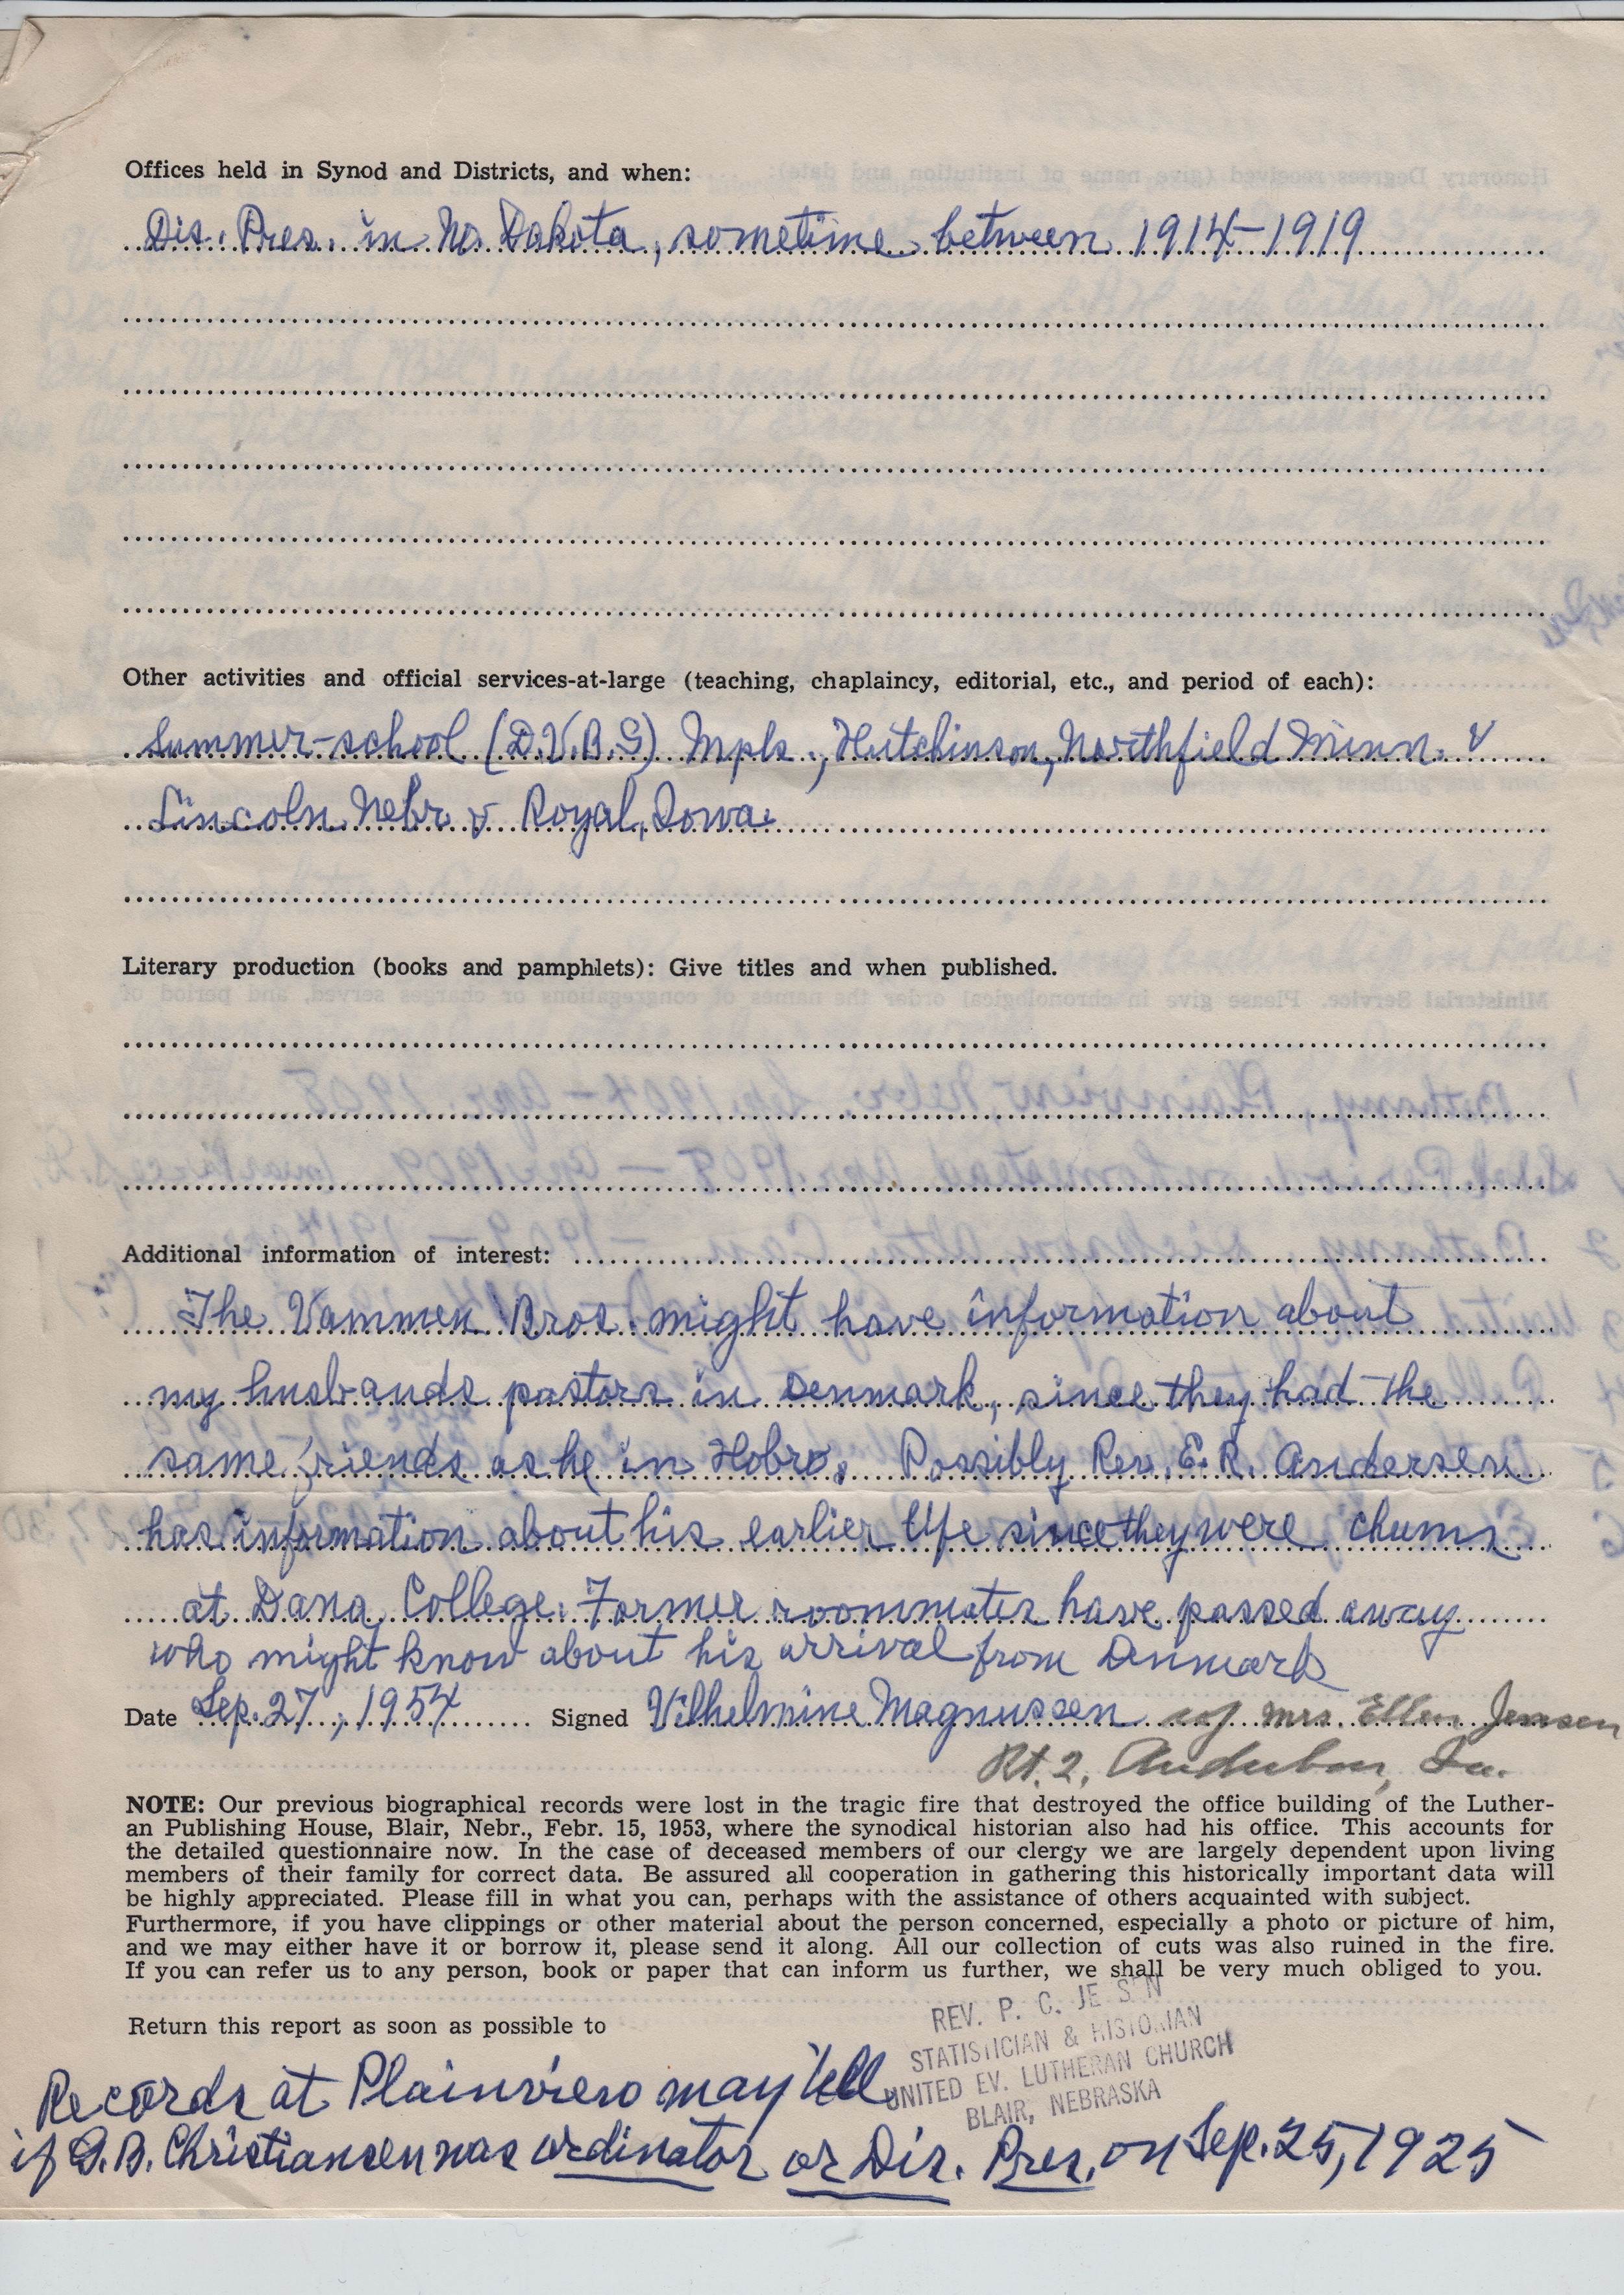 Offices held in Synod and Districts, and when:
Dis. Pres. in No. Dakota, sometime between 1914-1919
Other activities and official services-at-large (teaching, chaplaincy, editorial, etc., and period of each):
Summer-school (D.V.B.S) Mpls., Hutchinson, Northfield Minn. &
Lincoln Nebr & Royal, Iowa.
Literary production (books and pamphlets): Give titles and when published.
Additional information of interest:
The Vammen Bros. might have information about
my husbands pastors in Denmark, since they had the
same friends as he in Hobro. Possibly Rev. E. R. Andersen
has information about his earlier life since they were chums
at Dana College. Former roommates have passed away
who might know about his arrival from Denmark
Date Sep. 27, 1954 Signed Vilhelmine Magnussen c/o Mrs. Ellen Jensen
Rt. 2, Audubon, Ia.
NOTE: Our previous biographical records were lost in the tragic fire that destroyed the office building of the Luther-
an Publishing House, Blair, Nebr., Febr. 15, 1953, where the synodical historian also had his office. This accounts for
the detailed questionnaire now. In the case of deceased members of our clergy we are largely dependent upon living
members of their family for correct data. Be assured all cooperation in gathering this historically important data will
be highly appreciated. Please fill in what you can, perhaps with the assistance of others acquainted with subject.
Furthermore, if you have clippings or other material about the person concerned, especially a photo or picture of him,
and we may either have it or borrow it, please send it along. All our collection of cuts was also ruined in the fire.
If you can refer us to any person, book or paper that can inform us further, we shall be very much obliged to you.
Return this report as soon as possible to
REV. P. C. JE S N
STATISTICIAN & HISTORIAN
UNITED EV. LUTHERAN CHURCH
BLAIR, NEBRASKA
Records at Plainview may tell
if G. B. Christiansen was ordinator or Dis. Pres. on Sep. 25, 1925